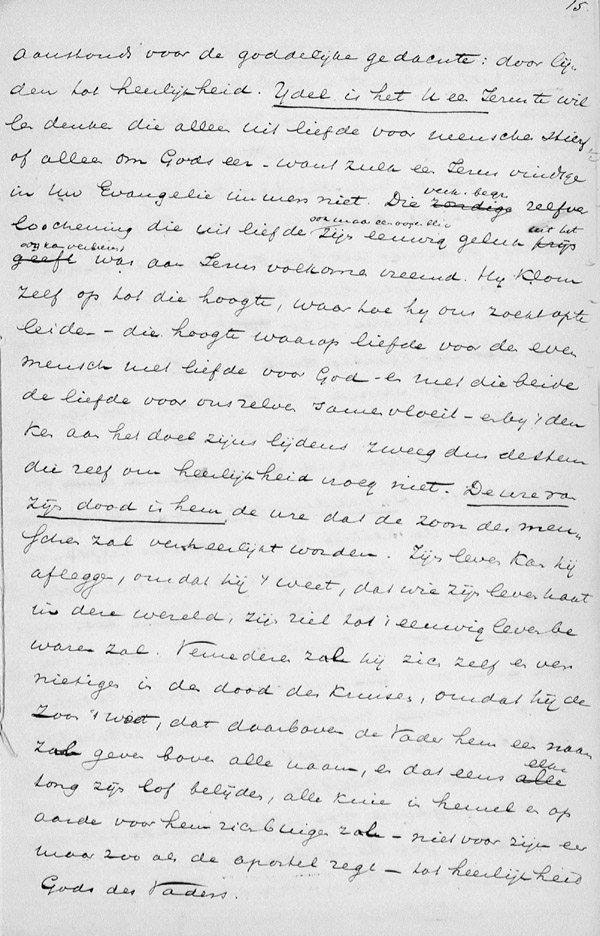 15.
aanstonds voor de goddelijke gedachte: door lij-
den tot heerlijkheid. Ydel is het U een Jezus te wil
len denken die alleen uit liefde voor menschen stierf
of alleen om Gods eer - want zulk een Jezus vindt ge
in Uw Evangelie immers niet. Die zondige zelfver
loochening die uit liefde zijn eeuwig geluk prijs
geeft was aan Jezus volkomen vreemd. Hy klom
zelf op tot die hoogte, waartoe hy ons zocht op te
leiden - die hoogte waarop liefde voor den even
mensch met liefde voor God - en met die beide
de liefde voor ons zelven samenvloeit - en by 't den
ken aan het doel zijns lijdens zweeg dus de stem
die zelf om heerlijkheid vroeg niet. De ure van
zijn dood is hem de ure dat de zoon des men-
schen zal verheerlijkt worden. Zijn leven kan hij
afleggen, omdat hij 't weet, dat wie zijn leven haat
in deze wereld, zijn ziel tot 't eeuwig leven be
waren zal. Vernederen zal hij zich zelf en ver
nietigen in den dood des kruises, omdat hij de
Zoon 't weet, dat daarboven de Vader hem een naam
zal geven boven alle naam, en dat eens elke alle
tong zijn lof belijden, alle knie in hemel en op
aarde voor hem zich buigen zal - niet voor zijn eer
maar zoo als de apostel zegt - tot heerlijkheid
Gods des Vaders.